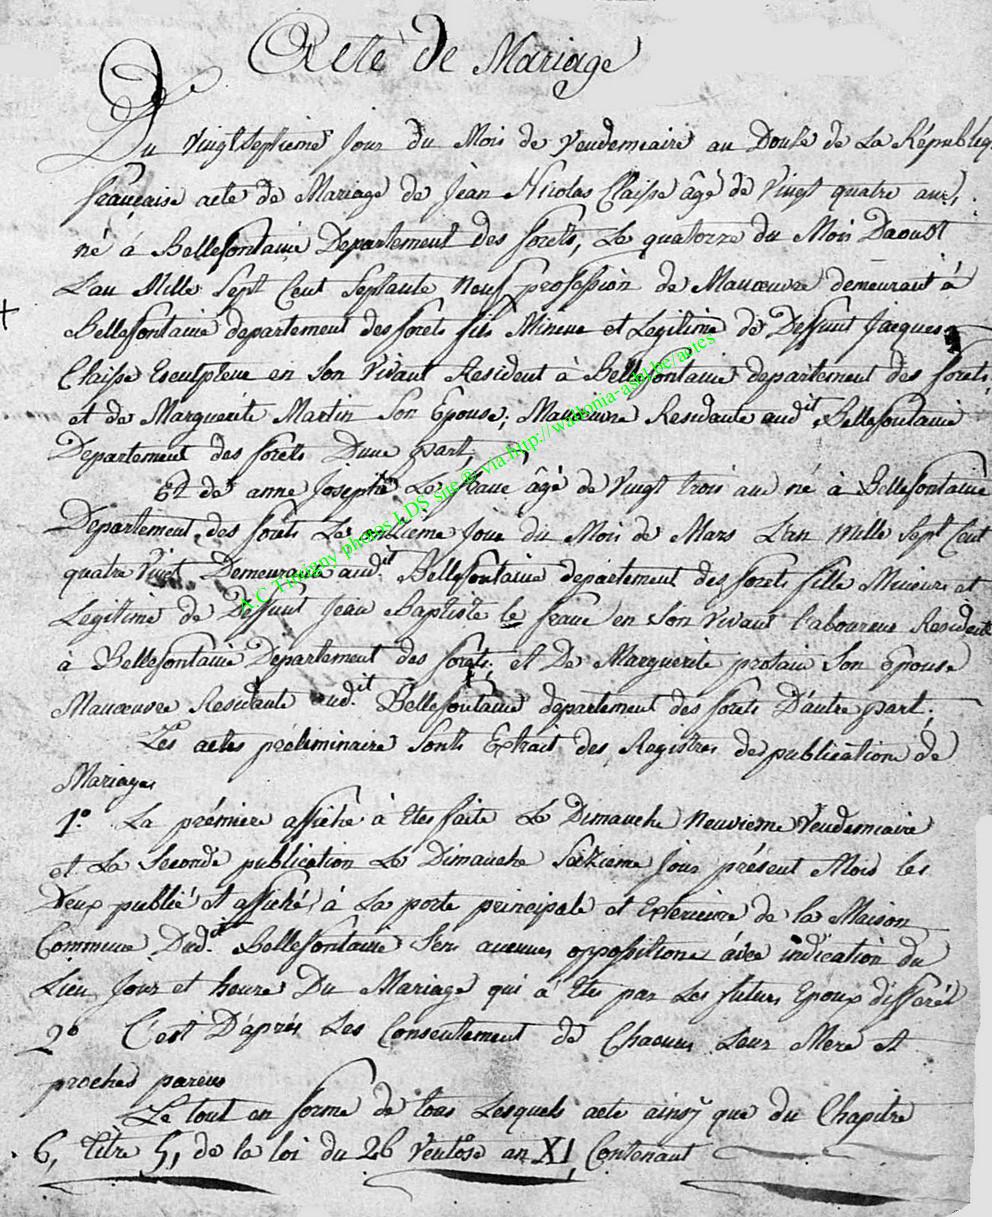 Acte de Mariage
Du vingt Septieme Jour du Mois de Vendemiaire an Douse de La Républiq
française acte de Mariage de Jean Nicolas Claisse âgé de Vingt quatre ans,
né à Bellefontaine Departement des forets, Le quatorze du Mois Daoust
L'an Mille Sept Cent Septante Neuf profession de Manœuvre demeurant à
Bellefontaine departement des forets fils Mineur et Legitime de Deffunt Jacques
Claisse Esculpteur en Son Vivant Resident à Bellefontaine departement des forets
et de Marguerite Martin Son Epouse, Manœuvre Residante audit Bellefontaine
Departement des forets Dune part,
Et de anne Josephe Le feaue âgé de Vingt trois ans né à Bellefontaine
Departement des forets Le onzieme Jour du Mois de Mars L'an Mille Sept Cent
quatre Vingt Demeurante audit Bellefontaine departement des forets fille Mineure et
Legitime de Deffunt Jean Baptiste le feaue en Son Vivant laboureur Resident
à Bellefontaine Departement des forets et De Marguerite protain Son épouse
Manœuvre Residante audit Bellefontaine departement des forets D'autre part,
Les actes préliminaire Sonts Extrait des Registres de publication de
Mariages
1º La prémiere affiche à Etes faite Le Dimanche Neuvieme Vendemiaire
et La Seconde publication Le Dimanche Saizieme Jour présent Mois les
Deux publié et affiché à La porte principale et Exterieure de la Maison
Commune Dudit Bellefontaine Sens aucunes oppossitions avec indication du
Lieu, Jour et heure Du Mariage qui à Etes par Les futurs Epoux differés
2º C'est D'aprés Les Consentement de Chacuns Leur Mere et
proches parens
Le tout en forme de tous Lesquels acte ainsy que du Chapitre
6, titre 5, de la loi du 26 Ventose an XI, Contenant
A.C Tintigny photos LDS site @ via http://wallonia-asbl.be/actes